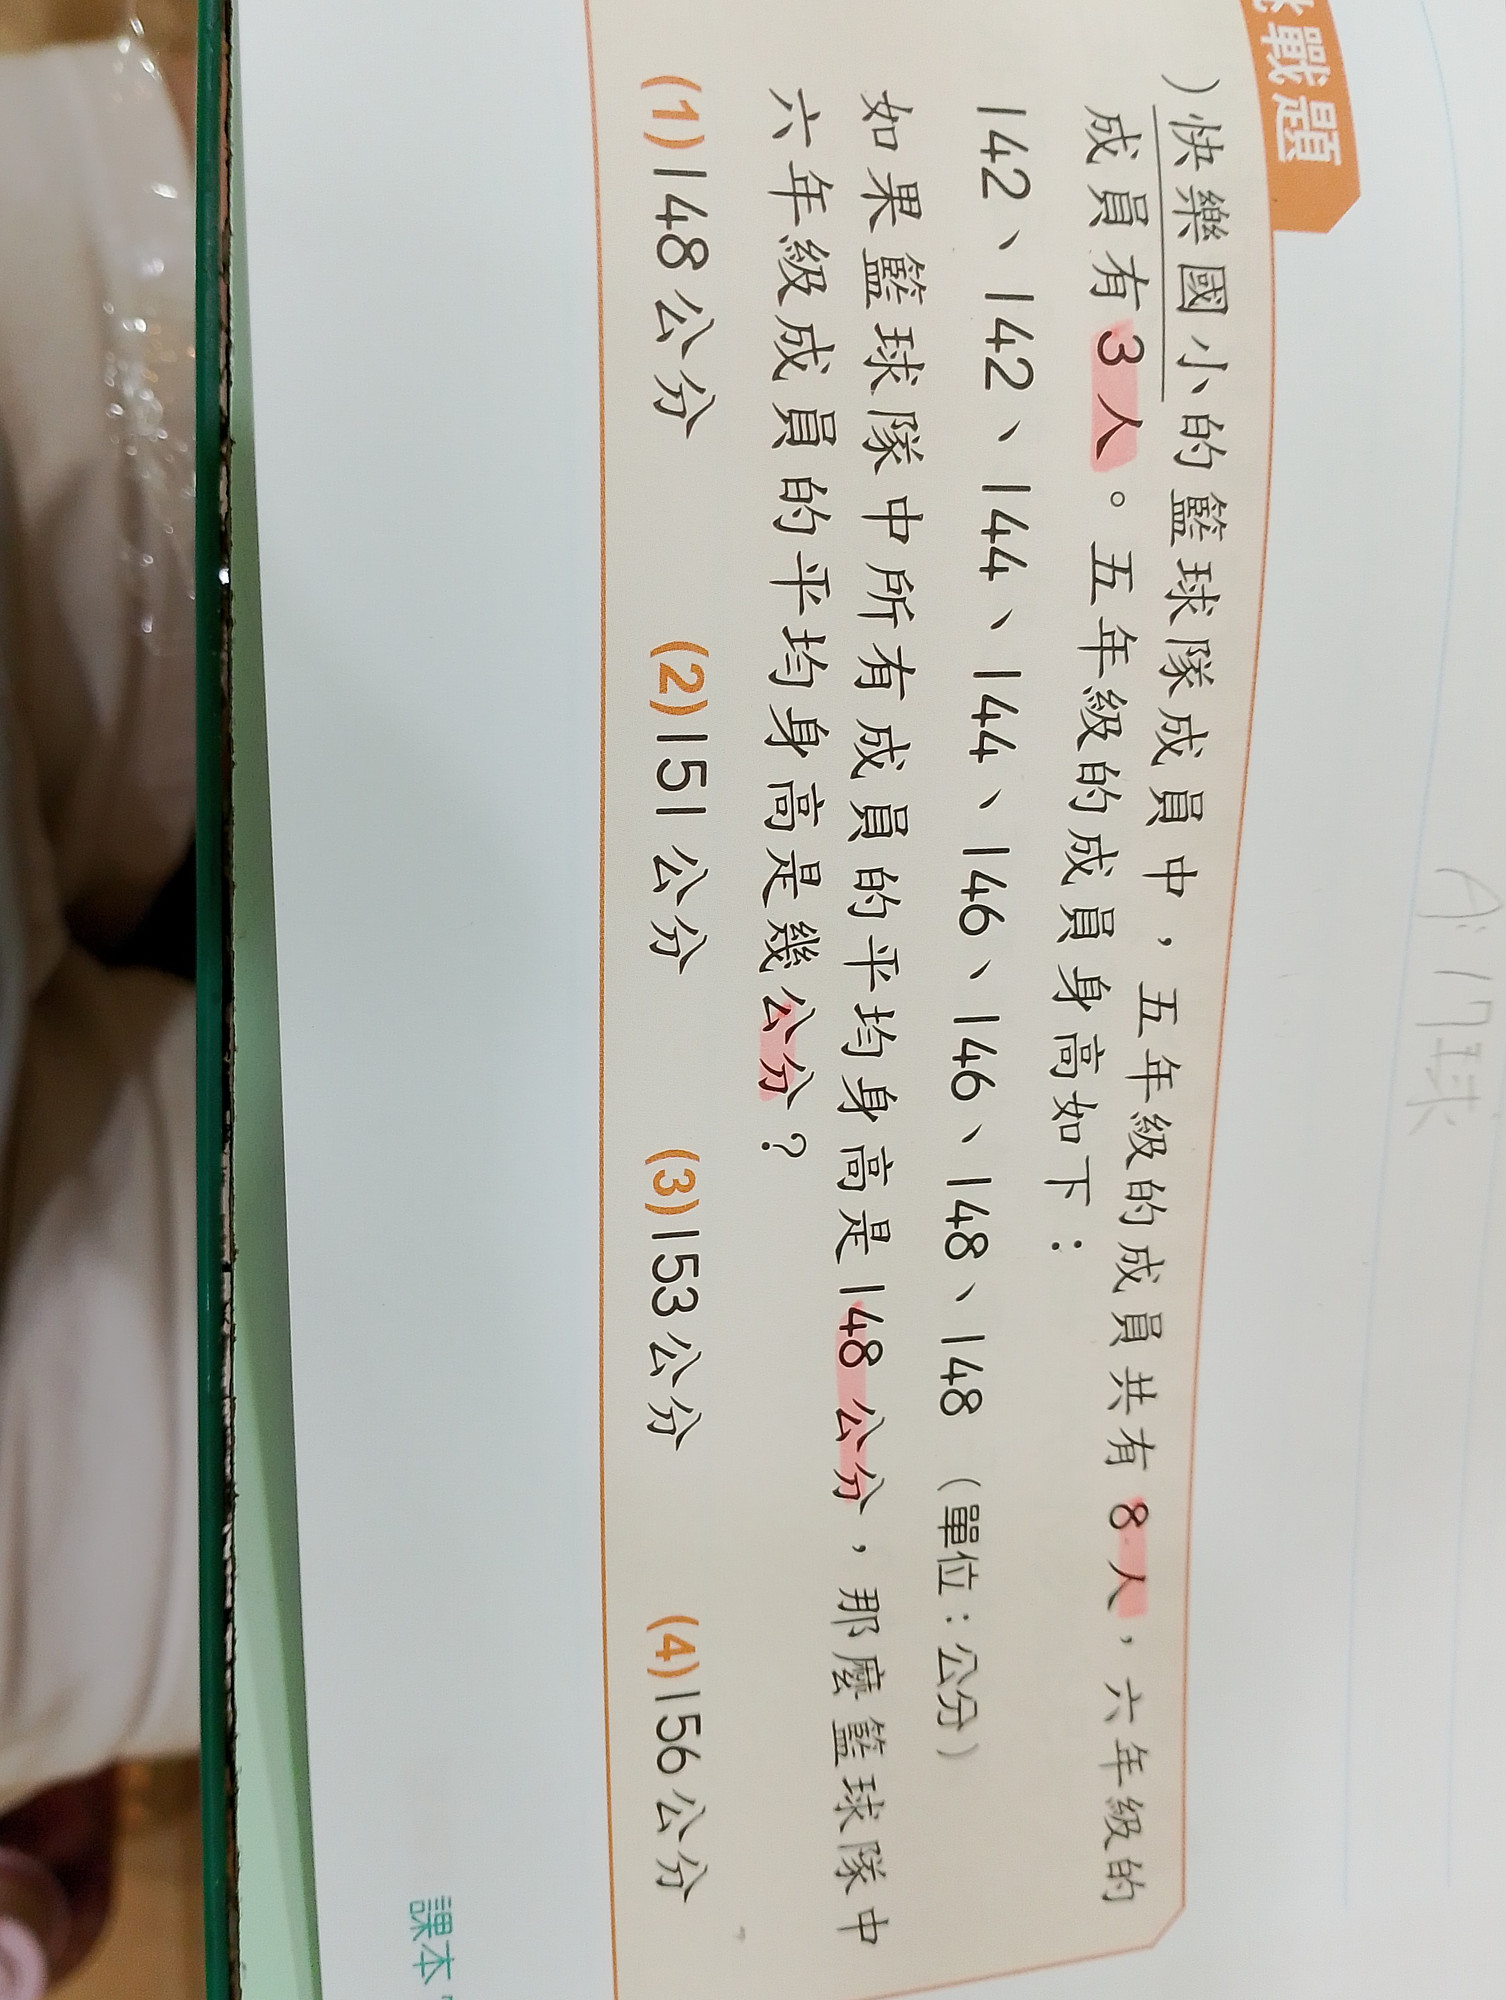 戰題
)快樂國小的籃球隊成員中，五年級的成員共有8人，六年級的
成員有3人。五年級的成員身高如下：
142、142、144、144、146、146、148、148（單位：公分）
如果籃球隊中所有成員的平均身高是148公分，那麼籃球隊中
六年級成員的平均身高是幾公分？
(1)148公分 (2)151公分 (3)153公分 (4)156公分
課本